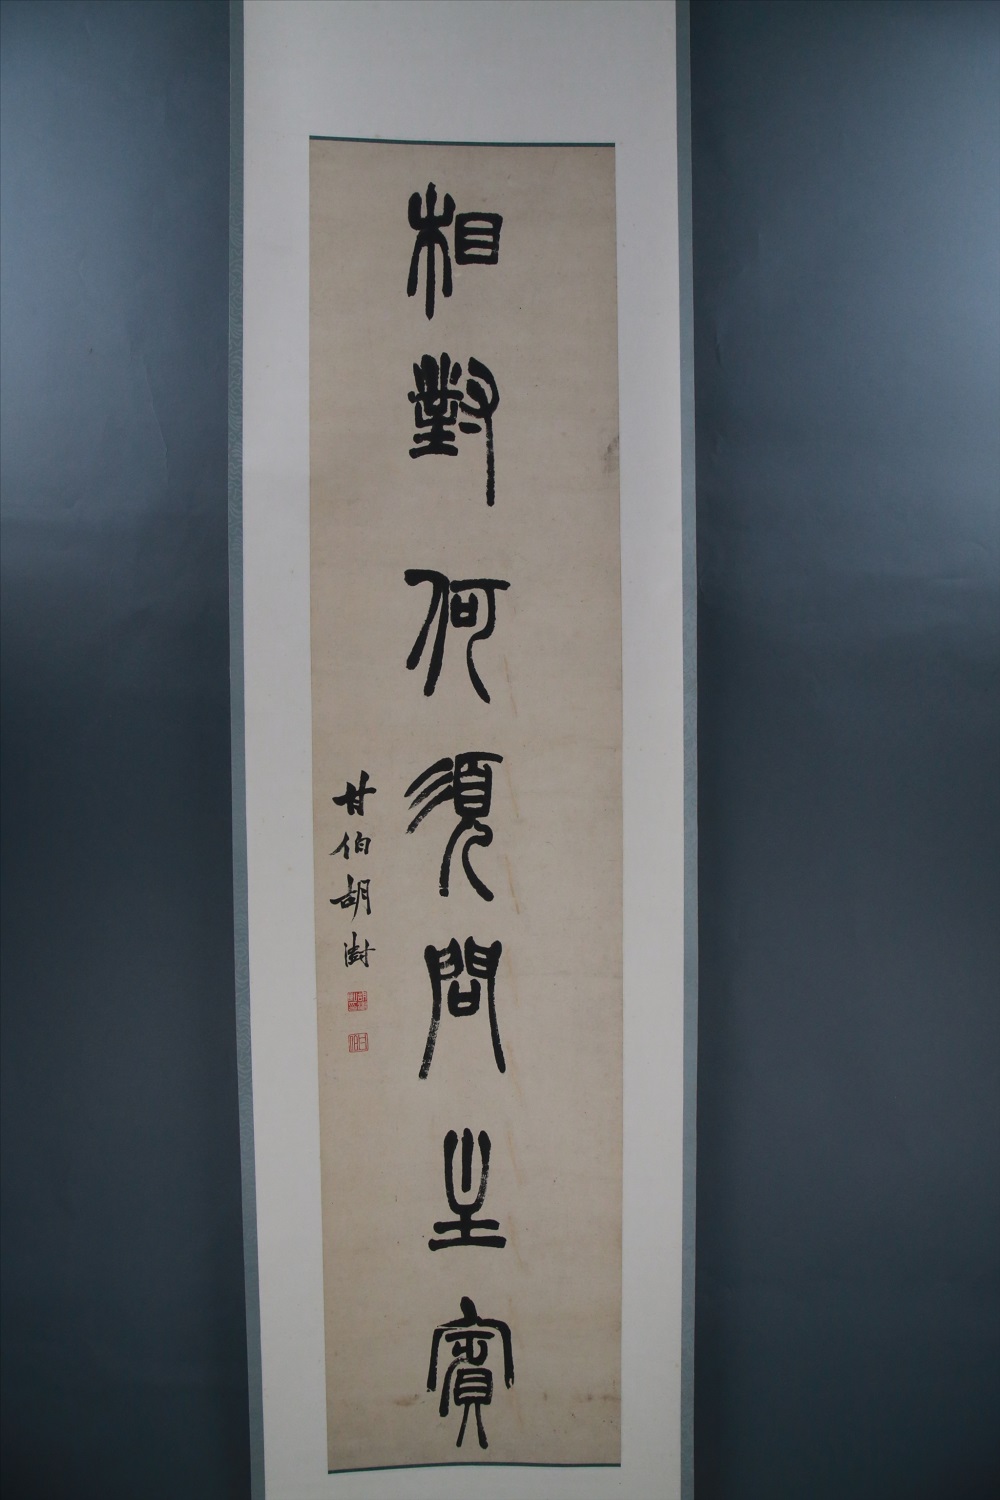 相對何須問主賓
甘伯胡澍